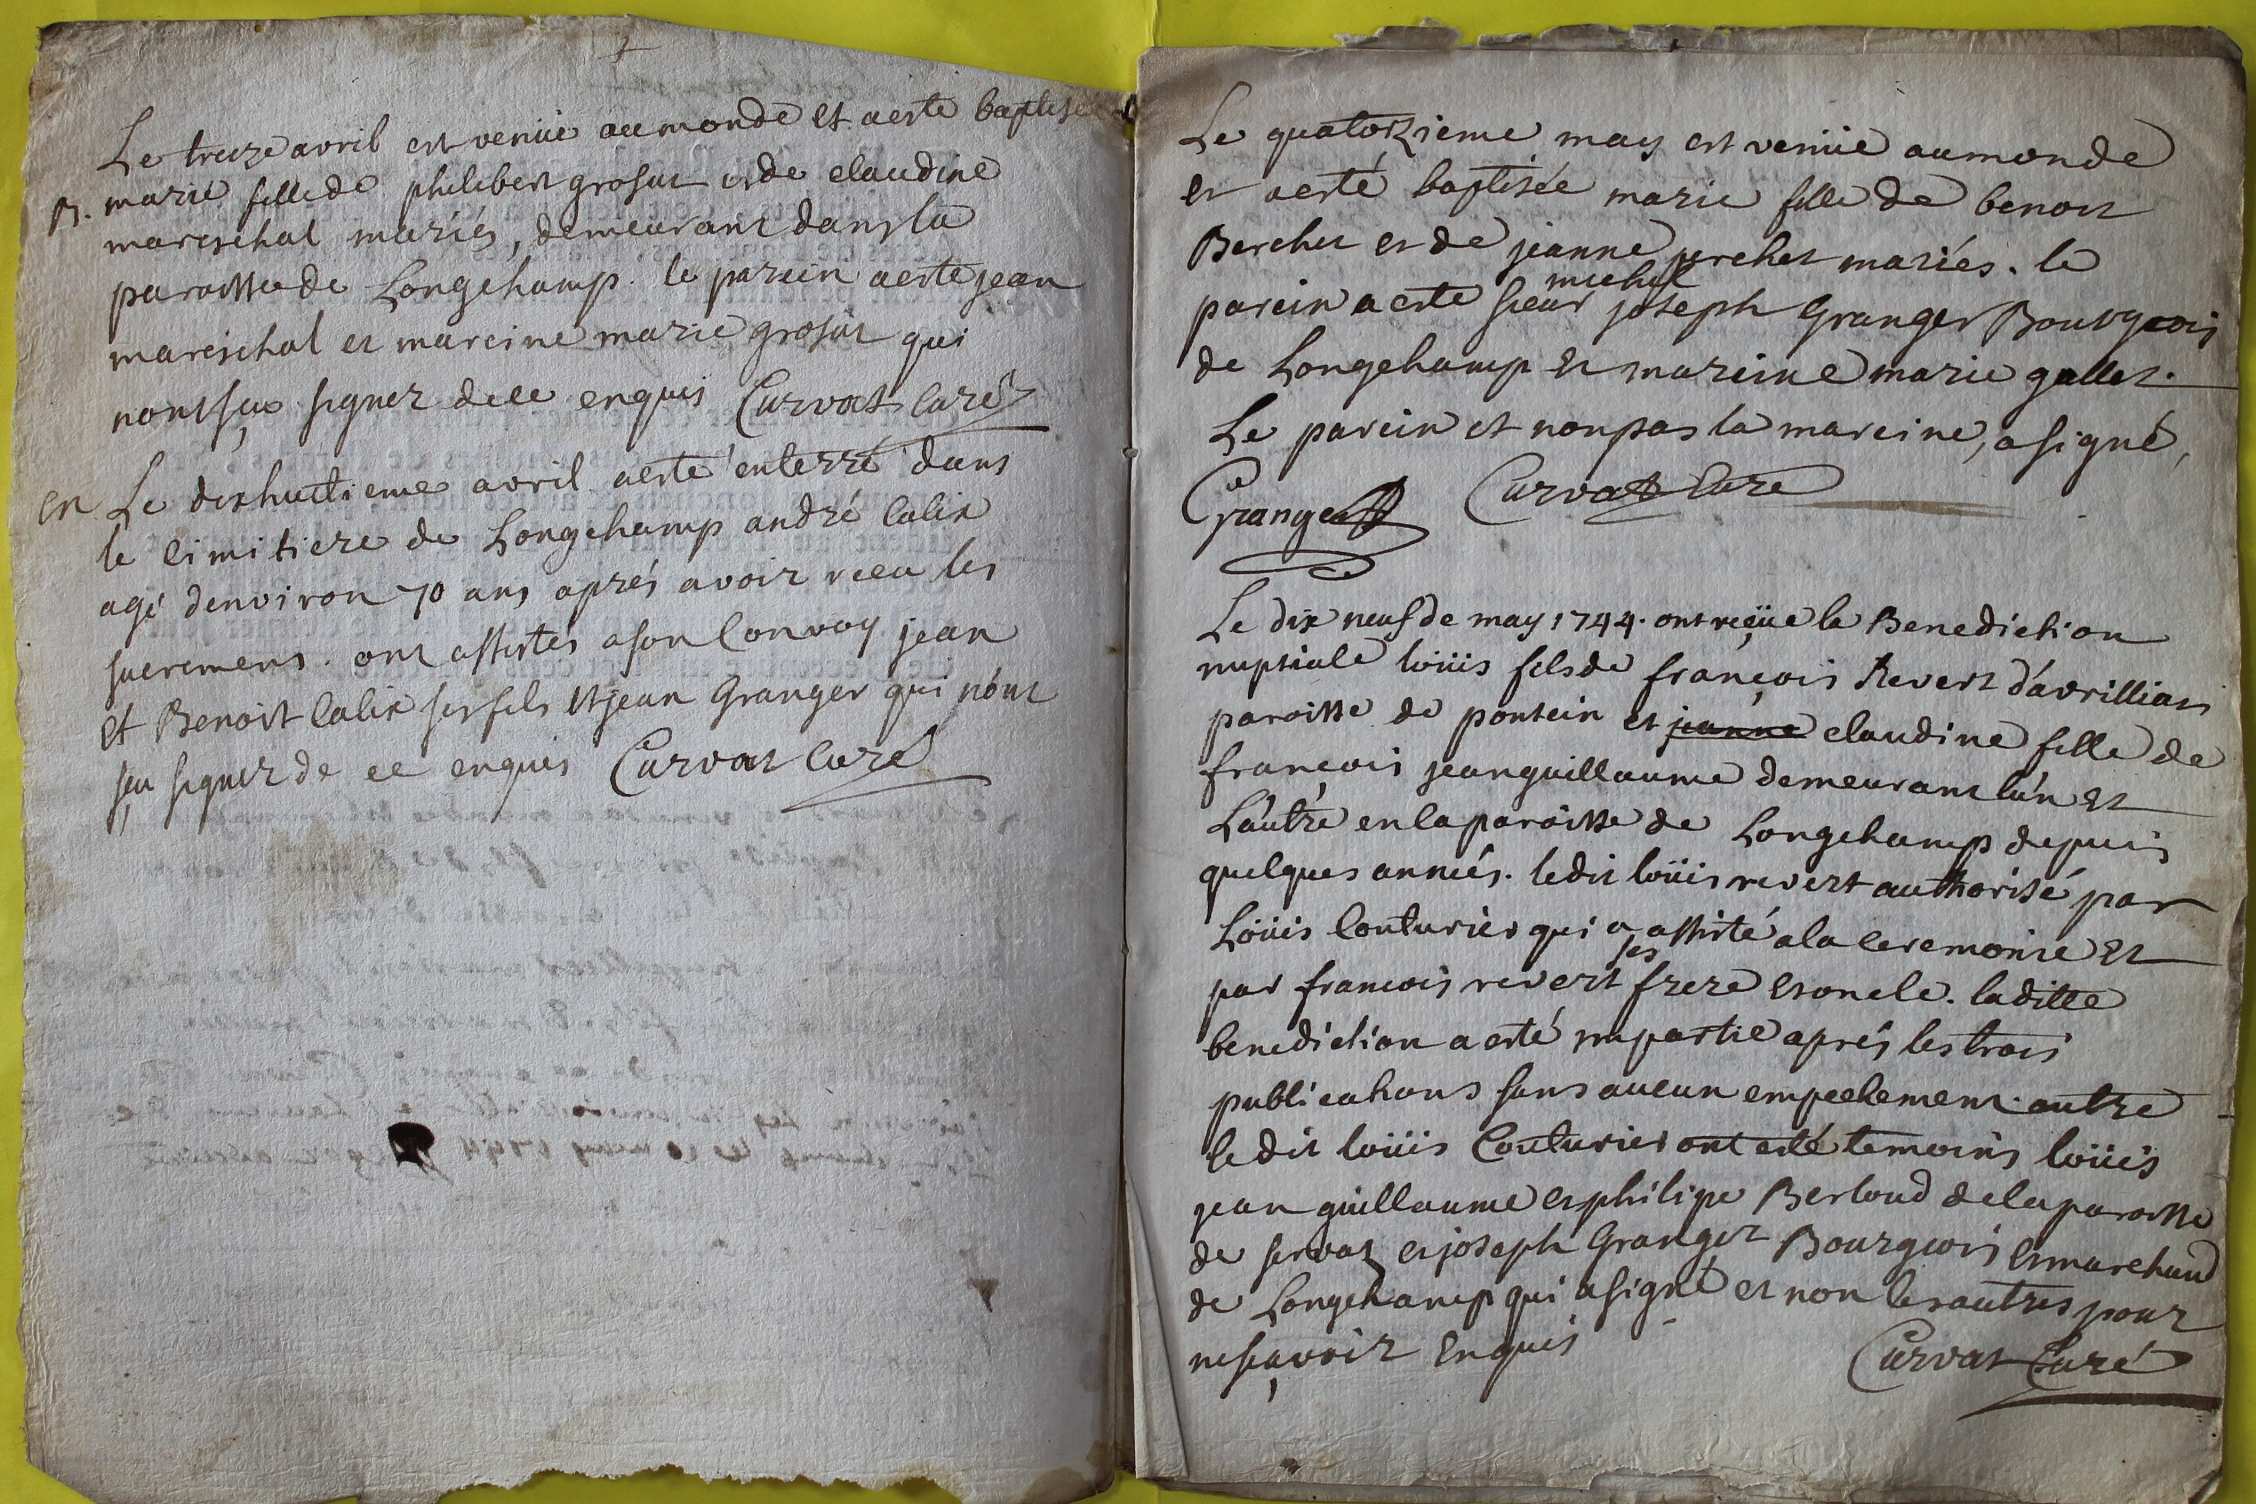 Le treize avril est venüe au monde et a esté baptisée
B. marie fille de philibert grosut et de claudine
mareschal mariés, demeurant dans la
paroisse de Longchamp. le parein a esté jean
mareschal et mareine marie grosut qui
nont sçu signer de ce enquis Curvat Curé
en Le dixhuitieme avril a esté enterré dans
le cimitiere de Longchamp andré Calix
agé denviron 70 ans aprés avoir receu les
sacremens. ont assistés a son Convoy jean
et Benoit Calix ses fils et jean Granger qui nont
sçu signer de ce enquis Curvat Curé
Le quatorzieme may est venüe au monde
et a esté baptisée marie fille de benoit
Berchet et de jeanne perchet mariés. le
michel
parein a esté sieur joseph Granger Bourgeois
de Longchamp et mareine marie gallet.
Le parein et non pas la mareine, a signé,
Granger Curvat Curé
Le dix neuf de may 1744. ont reçüe la Benediction
nuptiale loüis fils de françois Revert d'avrillias
paroisse de pontein et jeanne claudine fille de
françois jeanguillaume demeurant l'un et
L'autre en la paroisse de Longchamp depuis
quelques années. ledit loüis revert authorisé par
Loüis Couturier qui a assisté a la ceremonie et
ses
par francois revert frere et oncle. laditte
benediction a esté impartie aprés les trois
publications sans aucun empechement. outre
ledit loüis Couturier ont esté temoins loüis
jean guillaume et philipe Berloud de la paroisse
de servas et joseph Granger Bourgeois et marchand
de Longchamp qui a signé et non les autres pour
ne sçavoir Enquis
Curvat Curé